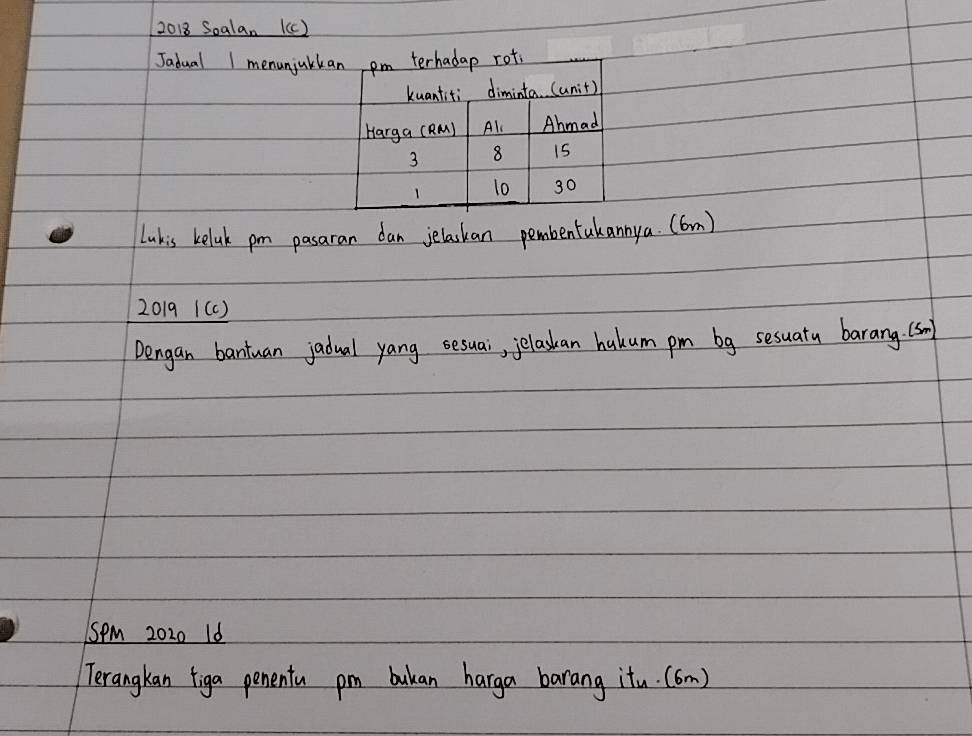 2018 Soalan 1(c)
Jadual 1 menunjukkan pm terhadap roti
kuantiti diminta (unit)
Harga (RM) Ali Ahmad
3 8 15
1 10 30
Lukis keluk pm pasaran dan jelaskan pembentukannya. (6m)
2019 1(c)
Dengan bantuan jadual yang sesuai, jelaskan hukum pm bg sesuatu barang. (5m)
SPM 2020 1d
Terangkan tiga penentu pm bukan harga barang itu. (6m)